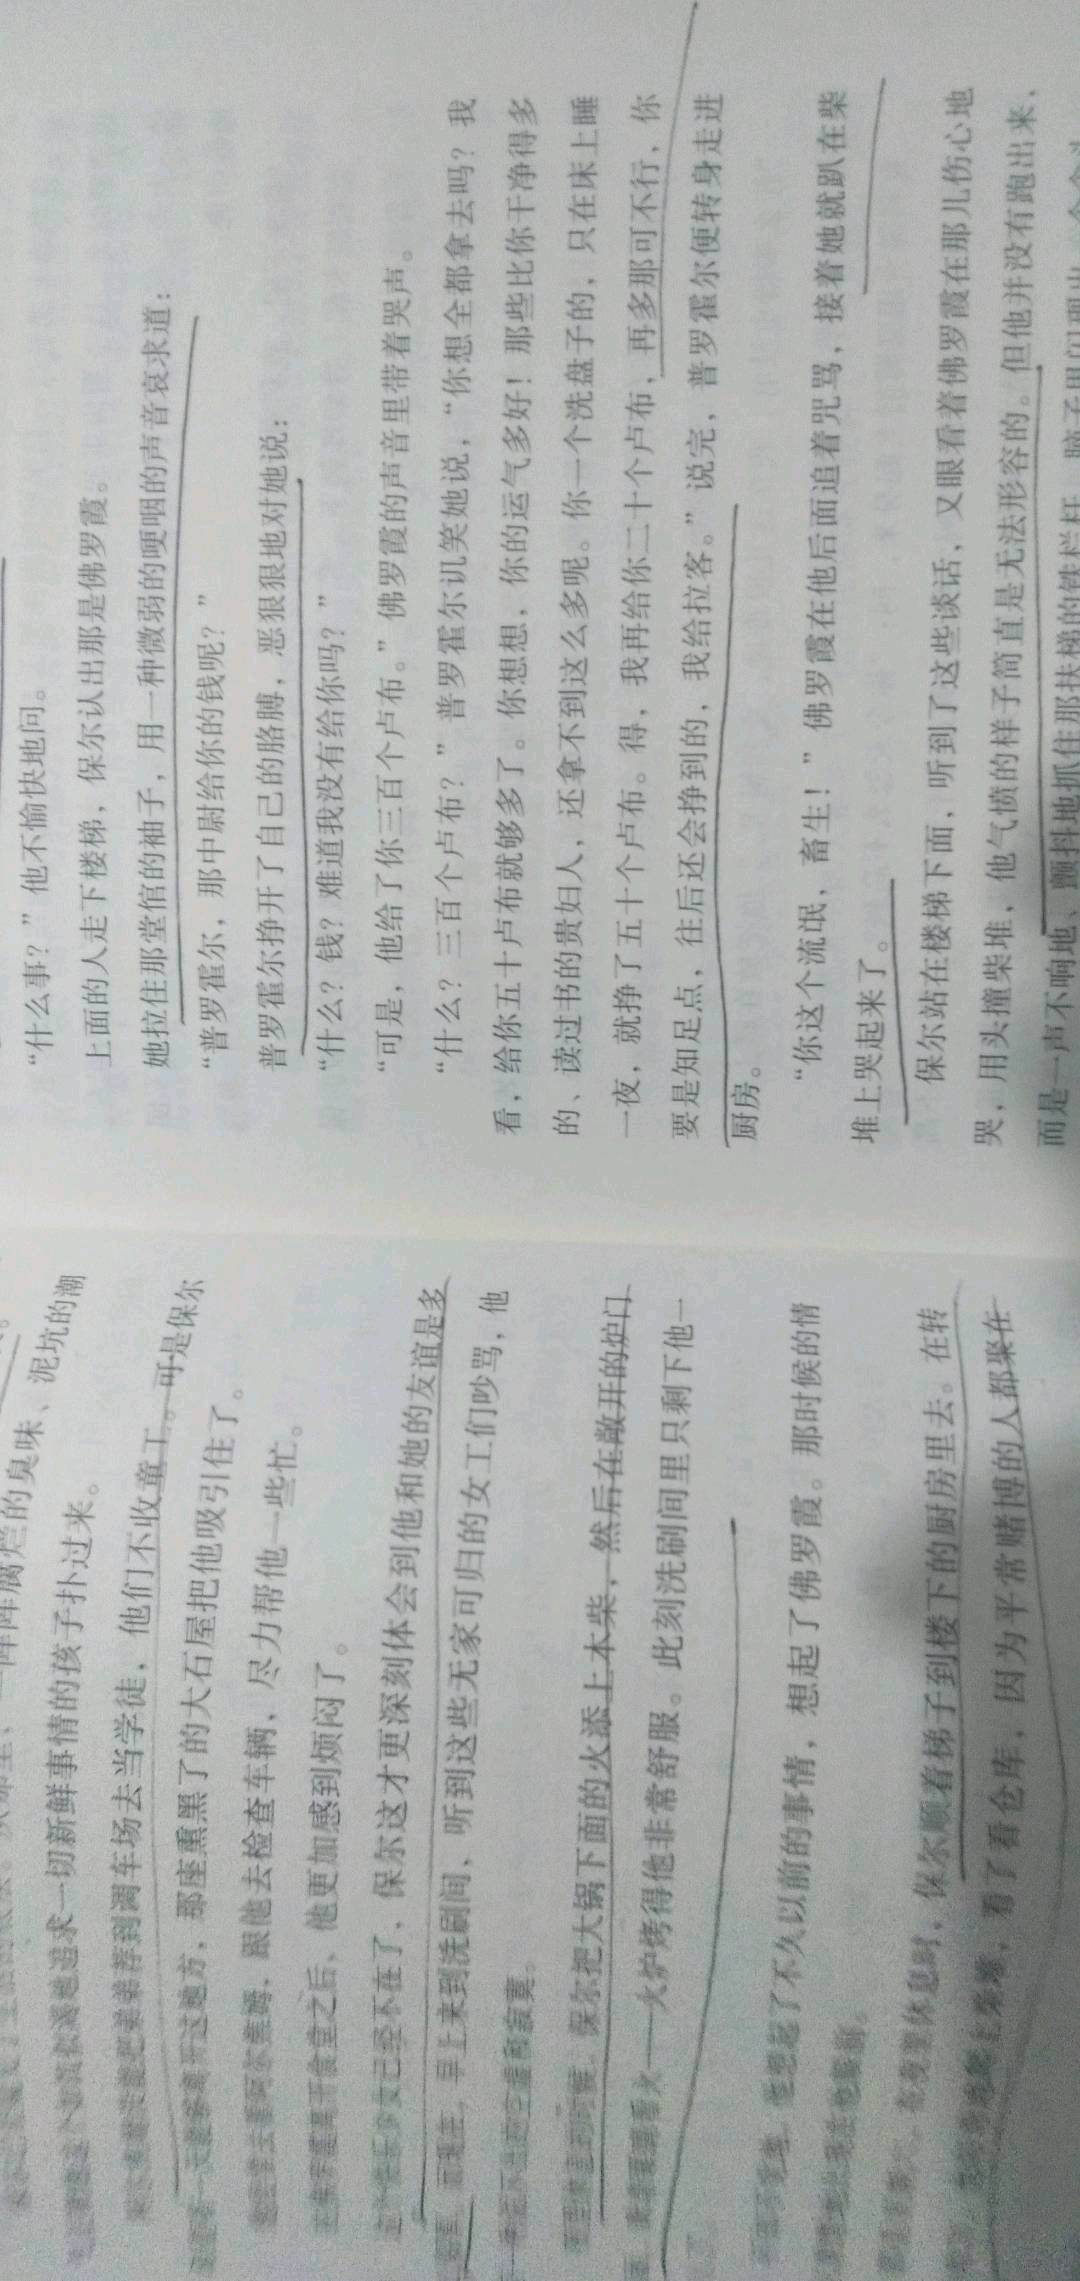 阵阵腐烂的臭味、泥坑的潮
追求一切新鲜事情的孩子扑过来。
把弟弟荐到调车场去当学徒，他们不收童工。可是保尔
开这地方，那座熏黑了的大石屋把他吸引住了。
跟他去检查车辆，尽力帮他一些忙。
离开食堂之后，他更加感到烦闷了。
少女已经不在了，保尔这才更深刻体会到他和她的友谊是多
早上来到洗刷间，听到这些无家可归的女工们吵骂，他
寂寞。
保尔把大锅下面的火添上木柴，然后在敞开的炉门
看火——火炉烤得他非常舒服。此刻洗刷间里只剩下他一
他想起了不久以前的事情，想起了佛罗霞。那时候的情
休息时，保尔顺着梯子到楼下的厨房里去。在转
看了看仓库，因为平常赌博的人都聚在
“什么事？”他不愉快地问。
上面的人走下楼梯，保尔认出那是佛罗霞。
她拉住那堂倌的袖子，用一种微弱的哽咽的声音哀求道：
“普罗霍尔，那中尉给你的钱呢？”
普罗霍尔挣开了自己的胳膊，恶狠狠地对她说：
“什么？钱？难道我没有给你吗？”
“可是，他给了你三百个卢布。”佛罗霞的声音里带着哭声。
“什么？三百个卢布？”普罗霍尔讥笑她说，“你想全都拿去吗？我
看，给你五十卢布就够多了。你想想，你的运气多好！那些比你干净得多
的、读过书的贵妇人，还拿不到这么多呢。你一个洗盘子的，只在床上睡
一夜，就挣了五十个卢布。得，我再给你二十个卢布，再多那可不行，你
要是知足点，往后还会挣到的，我给拉客。”说完，普罗霍尔便转身走进
厨房。
“你这个流氓，畜生！”佛罗霞在他后面追着咒骂，接着她就趴在柴
堆上哭起来了。
保尔站在楼梯下面，听到了这些谈话，又眼看着佛罗霞在那儿伤心地
哭，用头撞柴堆，他气愤的样子简直是无法形容的。但他并没有跑出来，
而是一声不响地、颤抖地抓住那扶梯的铁栏杆，脑子里闪现出一个念头